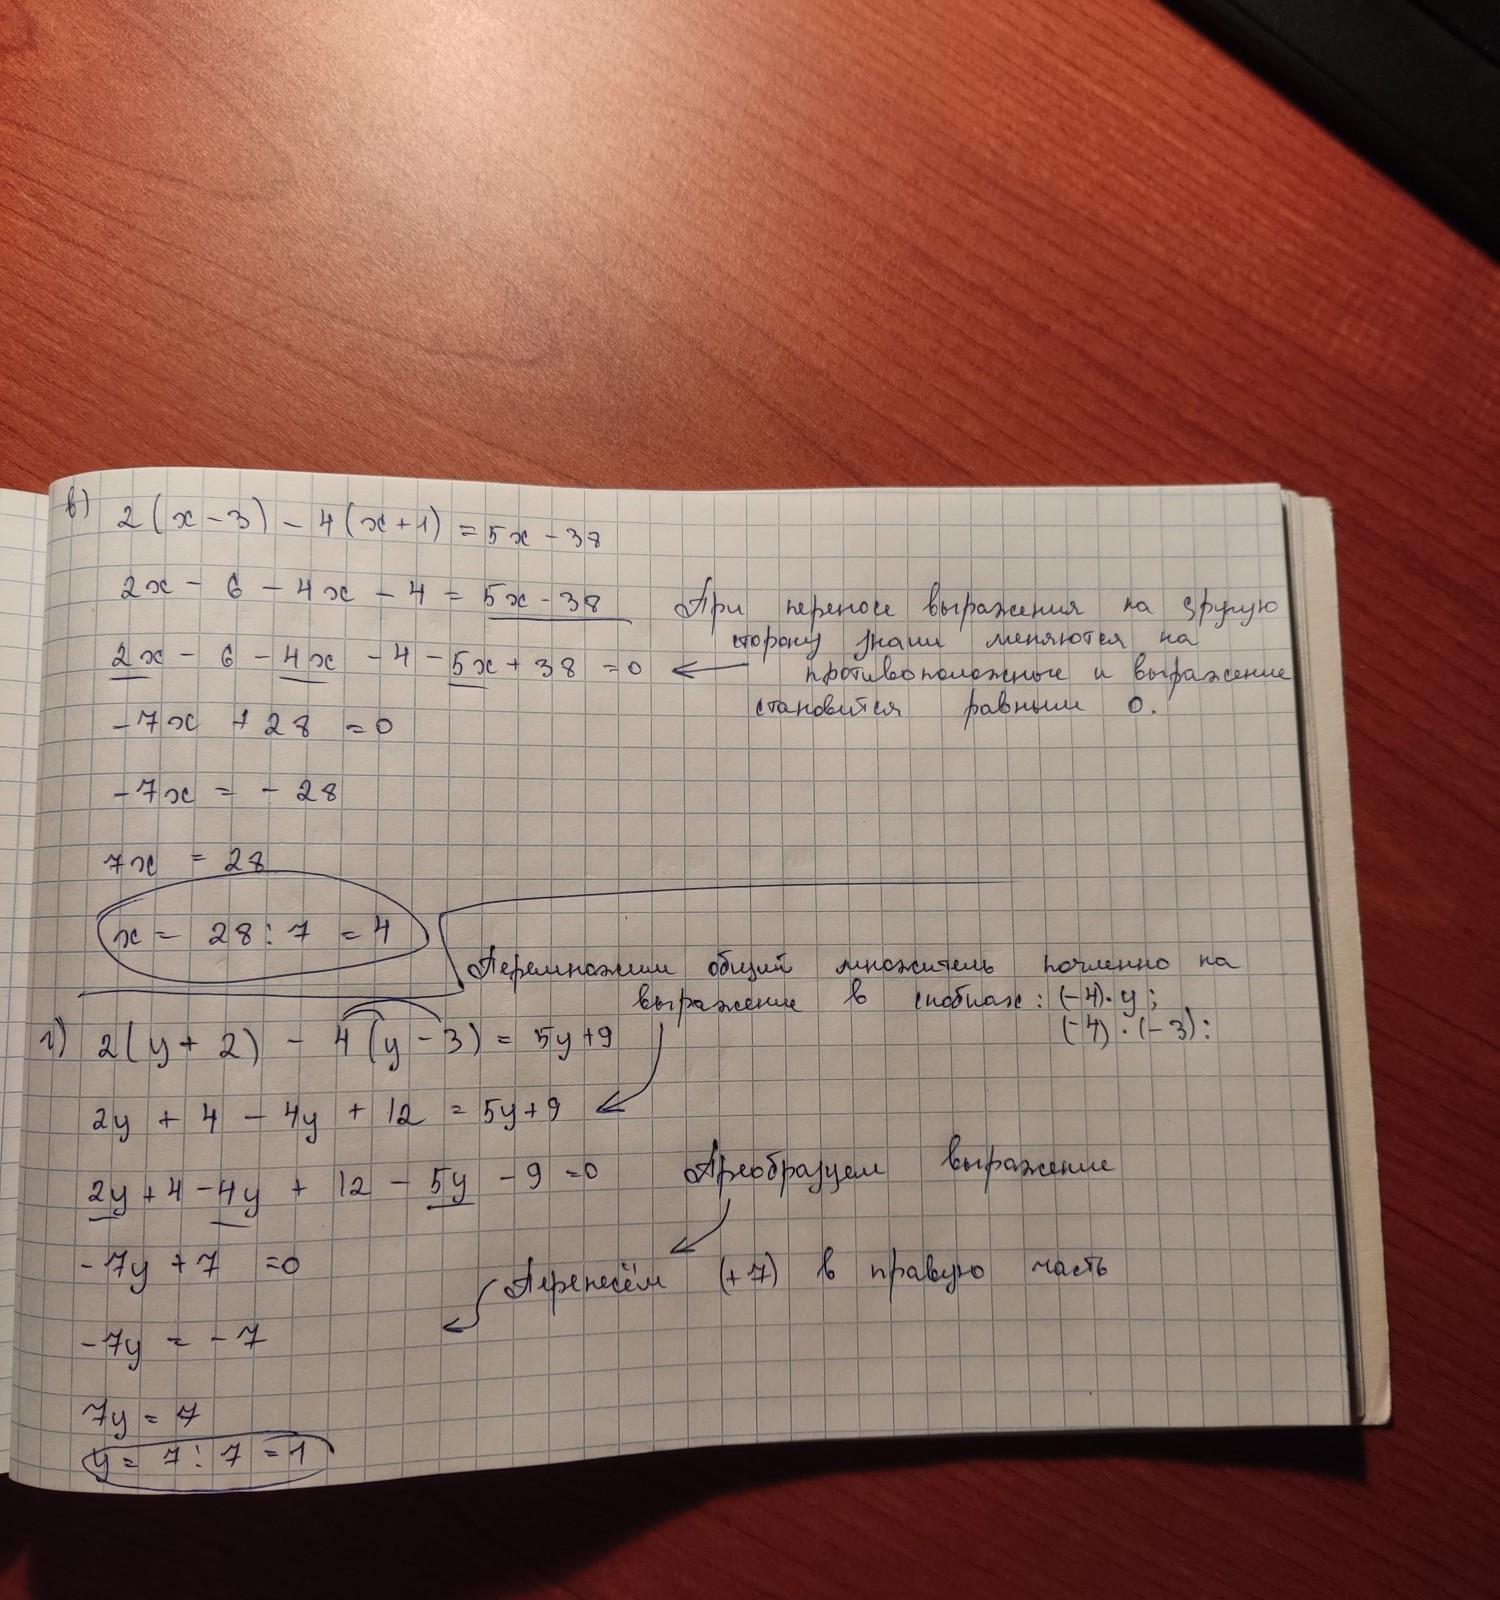 в) 2(x-3) - 4(x+1) = 5x - 38
2x - 6 - 4x - 4 = 5x - 38
При переносе выражения на другую
сторону знаки меняются на
2x - 6 - 4x - 4 - 5x + 38 = 0
противоположные и выражение
становится равным 0.
-7x + 28 = 0
-7x = - 28
7x = 28
x = 28 : 7 = 4
Перемножим общий множитель почленно на
выражение в скобках: (-4)·y;
(-4)·(-3):
г) 2(y + 2) - 4(y - 3) = 5y+9
2y + 4 - 4y + 12 = 5y+9
Преобразуем выражение
2y + 4 - 4y + 12 - 5y - 9 = 0
-7y + 7 = 0
Перенесём (+7) в правую часть
-7y = - 7
7y = 7
y = 7 : 7 = 1